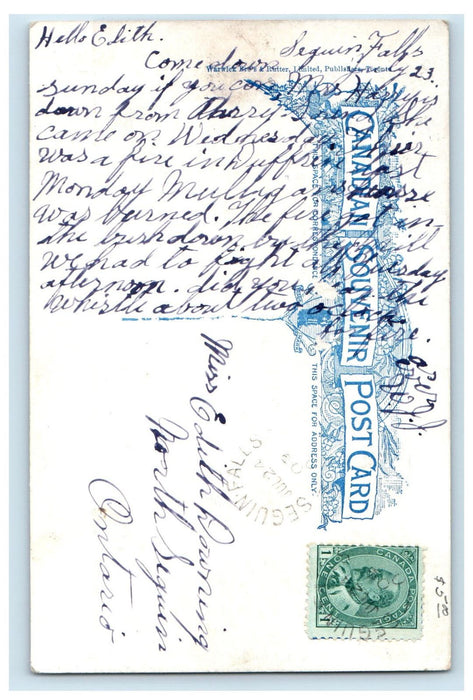 Hello Edith.
Seguin Falls
July 23.
Warwick Bro's & Rutter, Limited, Publishers, Toronto
Come down
Sunday if you can Mrs
down from
came on Wednesday. There
was a fire in last
Monday house
was burned. The fire got in
the bush down by the mill
we had to fight it Tuesday
afternoon. did you hear the
whistle about two oclock
for fire.
CANADIAN SOUVENIR POST CARD
THIS SPACE FOR CORRESPONDENCE
THIS SPACE FOR ADDRESS ONLY
Miss Edith Downing
North Seguin
Ontario
SEGUIN FALLS
JUL 24
CANADA POSTAGE
ONE CENT
1
$5.00